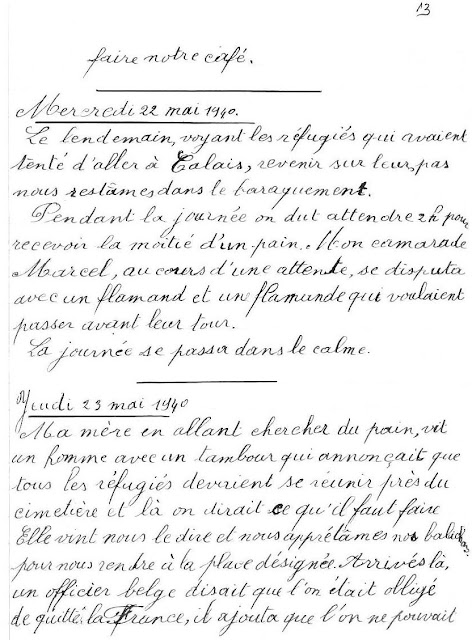 13
faire notre café.
Mercredi 22 mai 1940.
Le lendemain, voyant les réfugiés qui avaient
tenté d'aller à Calais, revenir sur leur, pas
nous restâmes dans le baraquement.
Pendant la journée on dut attendre 2h pour
recevoir la moitié d'un pain. Mon camarade
Marcel, au cours d'une attente, se disputa
avec un flamand et une flamande qui voulaient
passer avant leur tour.
La journée se passa dans le calme.
Jeudi 23 mai 1940
Ma mère en allant chercher du pain, vit
un homme avec un tambour qui annonçait que
tous les réfugiés devraient se réunir près du
cimetière et là on dirait ce qu'il faut faire
Elle vint nous le dire et nous apprêtâmes nos
pour nous rendre à la place désignée. Arrivés là,
un officier belge disait que l'on était obligé
de quitté la France, il ajouta que l'on ne pouvait